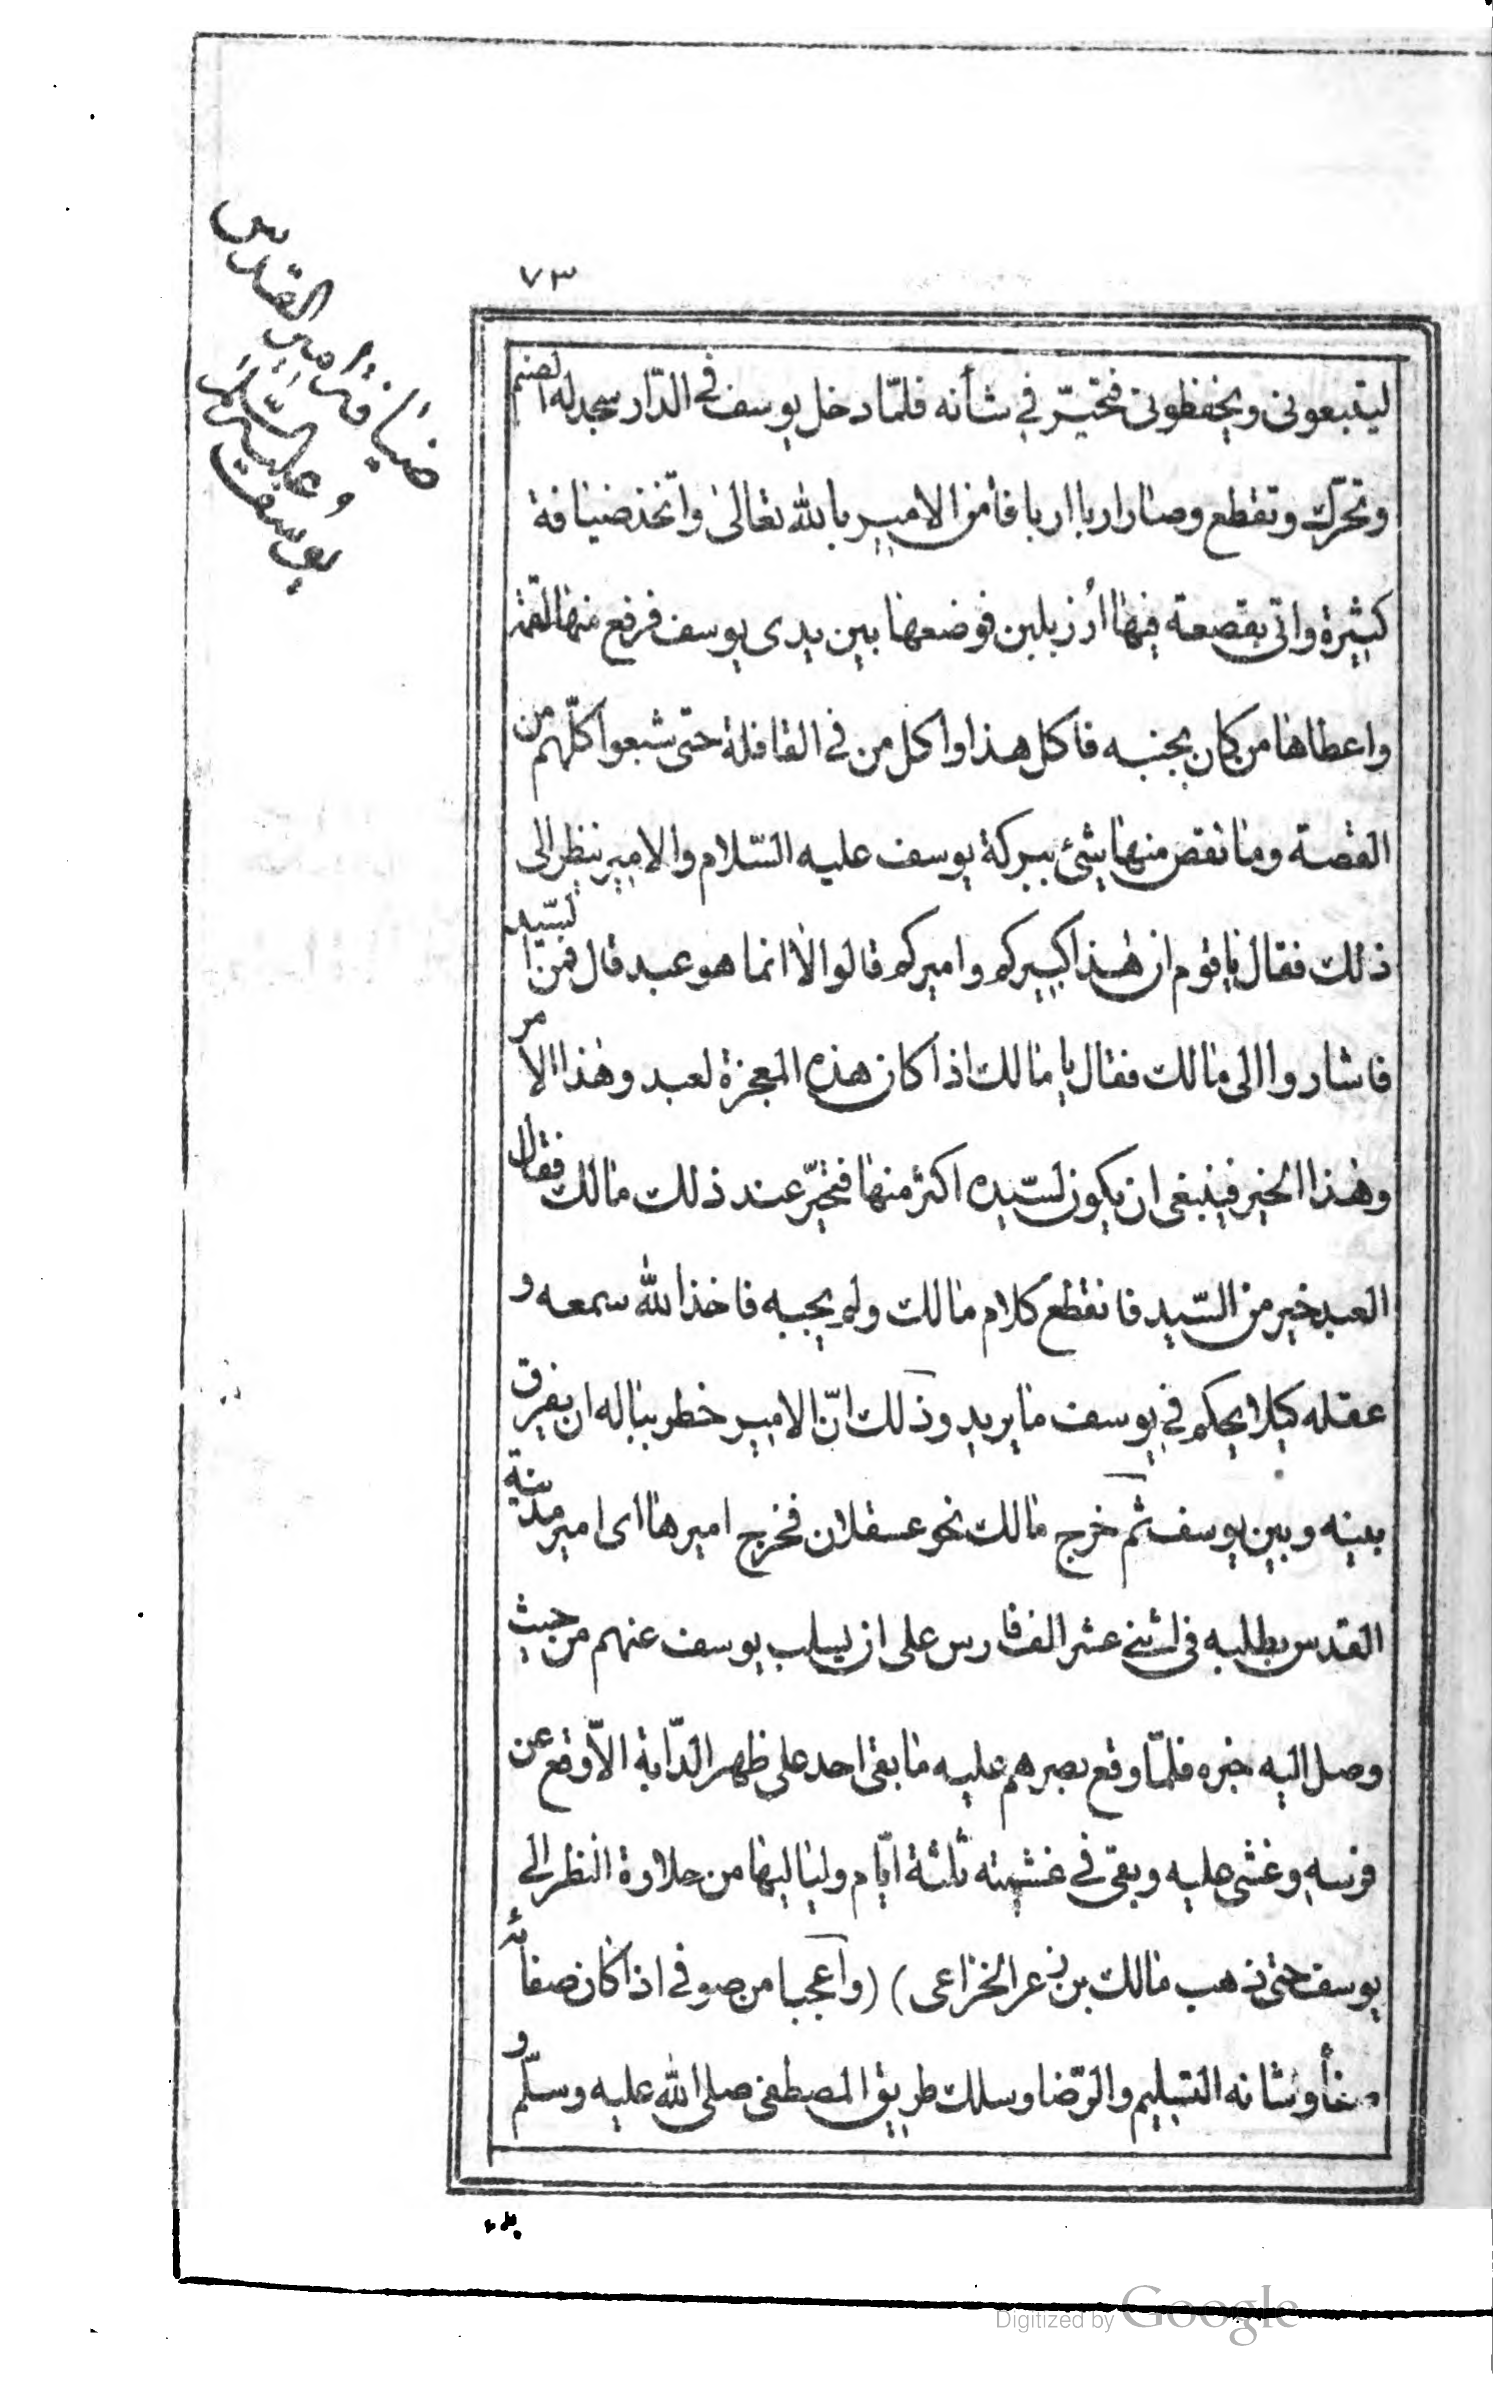 ٧٣
ضيافة امير القدس
يوسف عليه السلام
ليتبعونى ويحفظونى فتحيّر فى شأنه فلمّا دخل يوسف فى الدّار سجد له الصنم
وتحرّك وتقطع وصار اربا اربا فامن الامير بالله تعالى واتّخذ ضيافة
كثيرة واتى بقصعة فيها ارُز بلبن فوضعها بين يدى يوسف فرفع منها لقمة
واعطاها من كان بجنبه فاكل هذا واكل من فى القافلة حتى شبعوا كلّهم من
القصة وما نقص منها شئ ببركة يوسف عليه السّلام والامير ينظر الى
ذلك فقال يا قوم ان هذا كبيركم واميركم قالوا لا انما هو عبد قال فمن السّيد
فاشاروا الى مالك فقال يا مالك اذا كان هذه المعجزة لعبد وهذا الامر
وهذا الخير فينبغى ان يكون لسيّده اكثر منها فتحيّر عند ذلك مالك فقال
العبد خير من السّيد فانقطع كلام مالك ولم يجبه فاخذ الله سمعه و
عقله كيلا يحكم فى يوسف ما يريد وذلك انّ الامير خطر بباله ان يفرق
بينه وبين يوسف ثم خرج مالك نحو عسقلان فخرج اميرها اى امير مدينة
القدس يطلبه فى اثنى عشر الف فارس على ان يسلب يوسف عنهم من حيث
وصل اليه خبره فلمّا وقع بصرهم عليه ما بقى احد على ظهر الدّابة الاّ وقع عن
فرسه وغشى عليه وبقى فى غشيته ثلثة ايّام ولياليها من حلاوة النظر الى
يوسف حتى ذهب مالك بن ذعر الخزاعى) (واعجبا من صوفى اذا كان صفائه
وشانه التسليم والرّضا وسلك طريق المصطفى صلى الله عليه وسلّم و
Digitized by Google